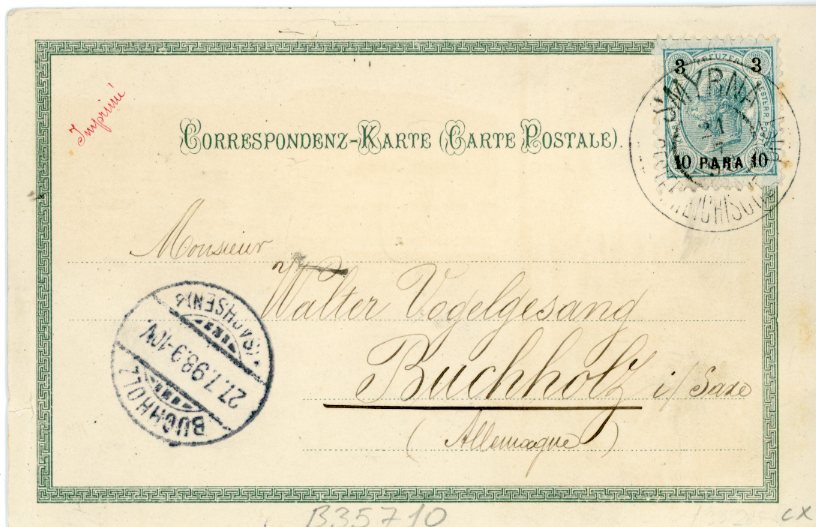 Imprimé
CORRESPONDENZ-KARTE (CARTE POSTALE).
3 KREUZER 3
10 PARA 10
SMYRNA
Monsieur
Walter Vogelgesang
Buchholz i/ Saxe
(Allemagne)
BUCHHOLZ
27.7.98.9-10V.
(SACHSEN)
B35710
cx